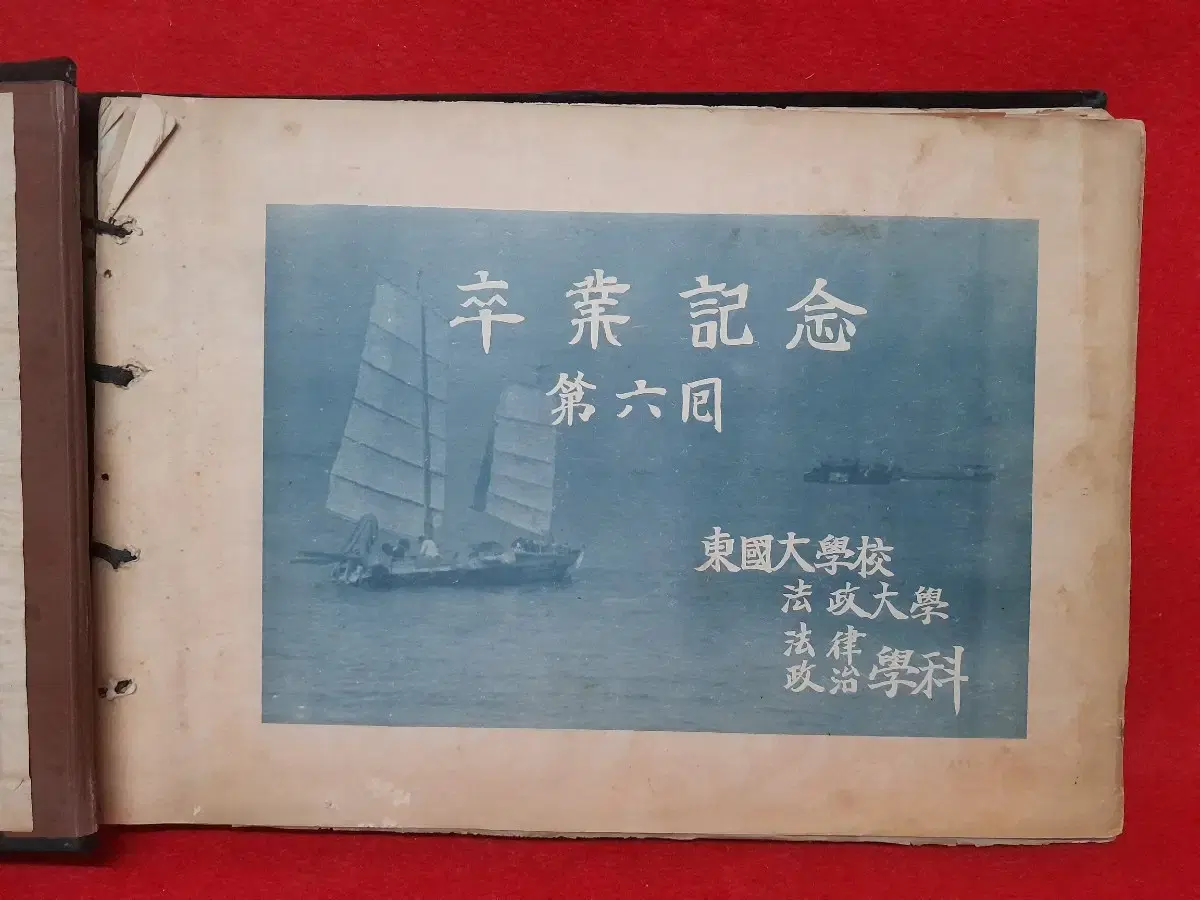 卒業記念
第六回
東國大學校
法政大學
法律
政治學科